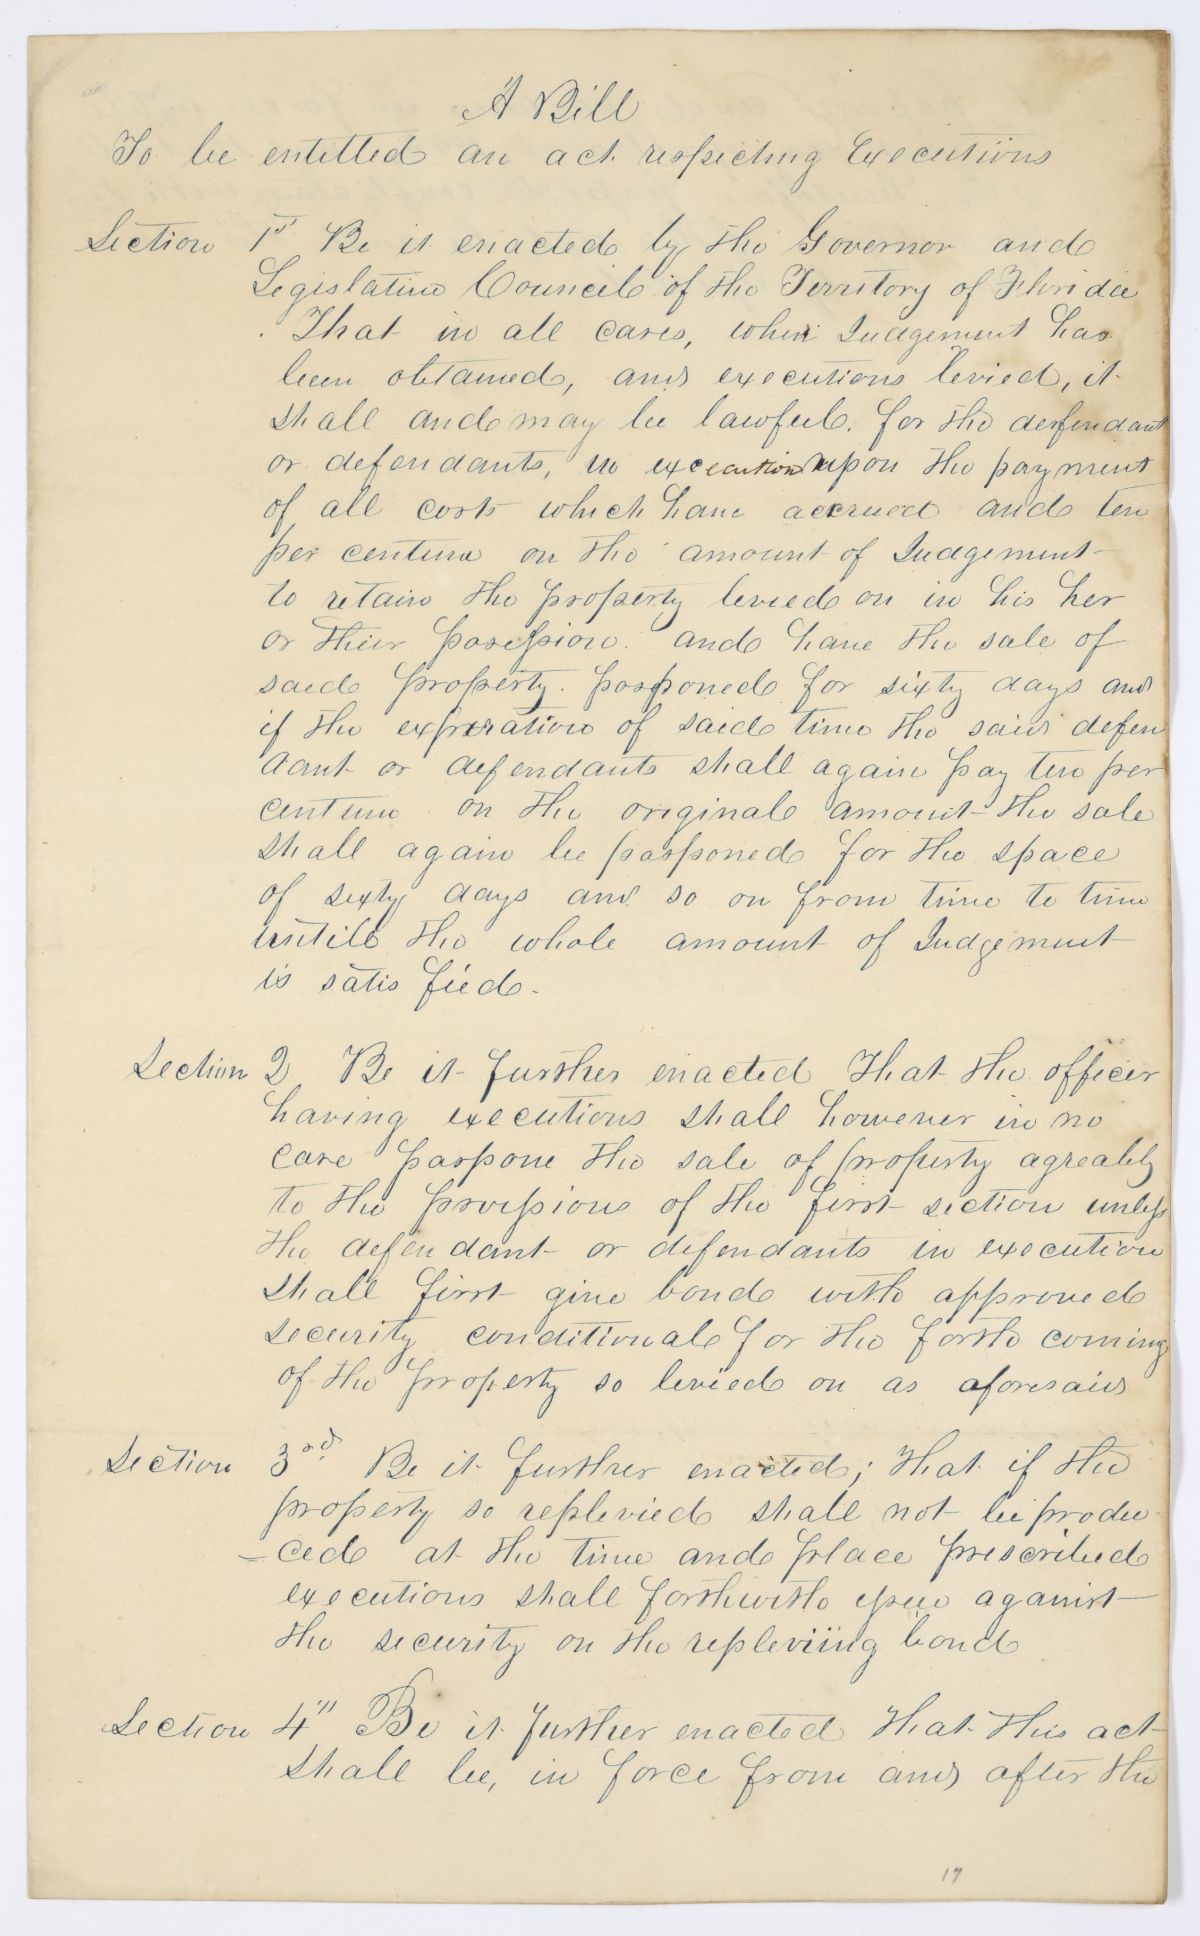 A Bill
To be entitled an act respecting Executions
Section 1st Be it enacted by the Governor and
Legislative Council of the Territory of Florida
That in all cases, when Judgement has
been obtained, and executions levied, it
shall and may be lawful for the defendant
or defendants, in execution upon the payment
of all costs which have accrued and ten
per centum on the amount of Judgement
to retain the property levied on in his her
or their possession and have the sale of
said property posponed for sixty days and
if the expiration of said time the said defen
dant or defendants shall again pay ten per
centum on the original amount the sale
shall again be posponed for the space
of sixty days and so on from time to time
untill the whole amount of Judgement
is satisfied.
Section 2 Be it further enacted That the officer
having executions shall however in no
case pospone the sale of property agreably
to the provissions of the first section unless
the defendant or defendants in execution
shall first give bond with approved
security conditional for the forth coming
of the property so levied on as aforesaid
Section 3rd Be it further enacted; That if the
property so replevied shall not be produ
=ced at the time and place prescribed
executions shall forthwith issue against
the security on the repleviing bond
Section 4th Be it further enacted That this act
shall be, in force from and after the
17